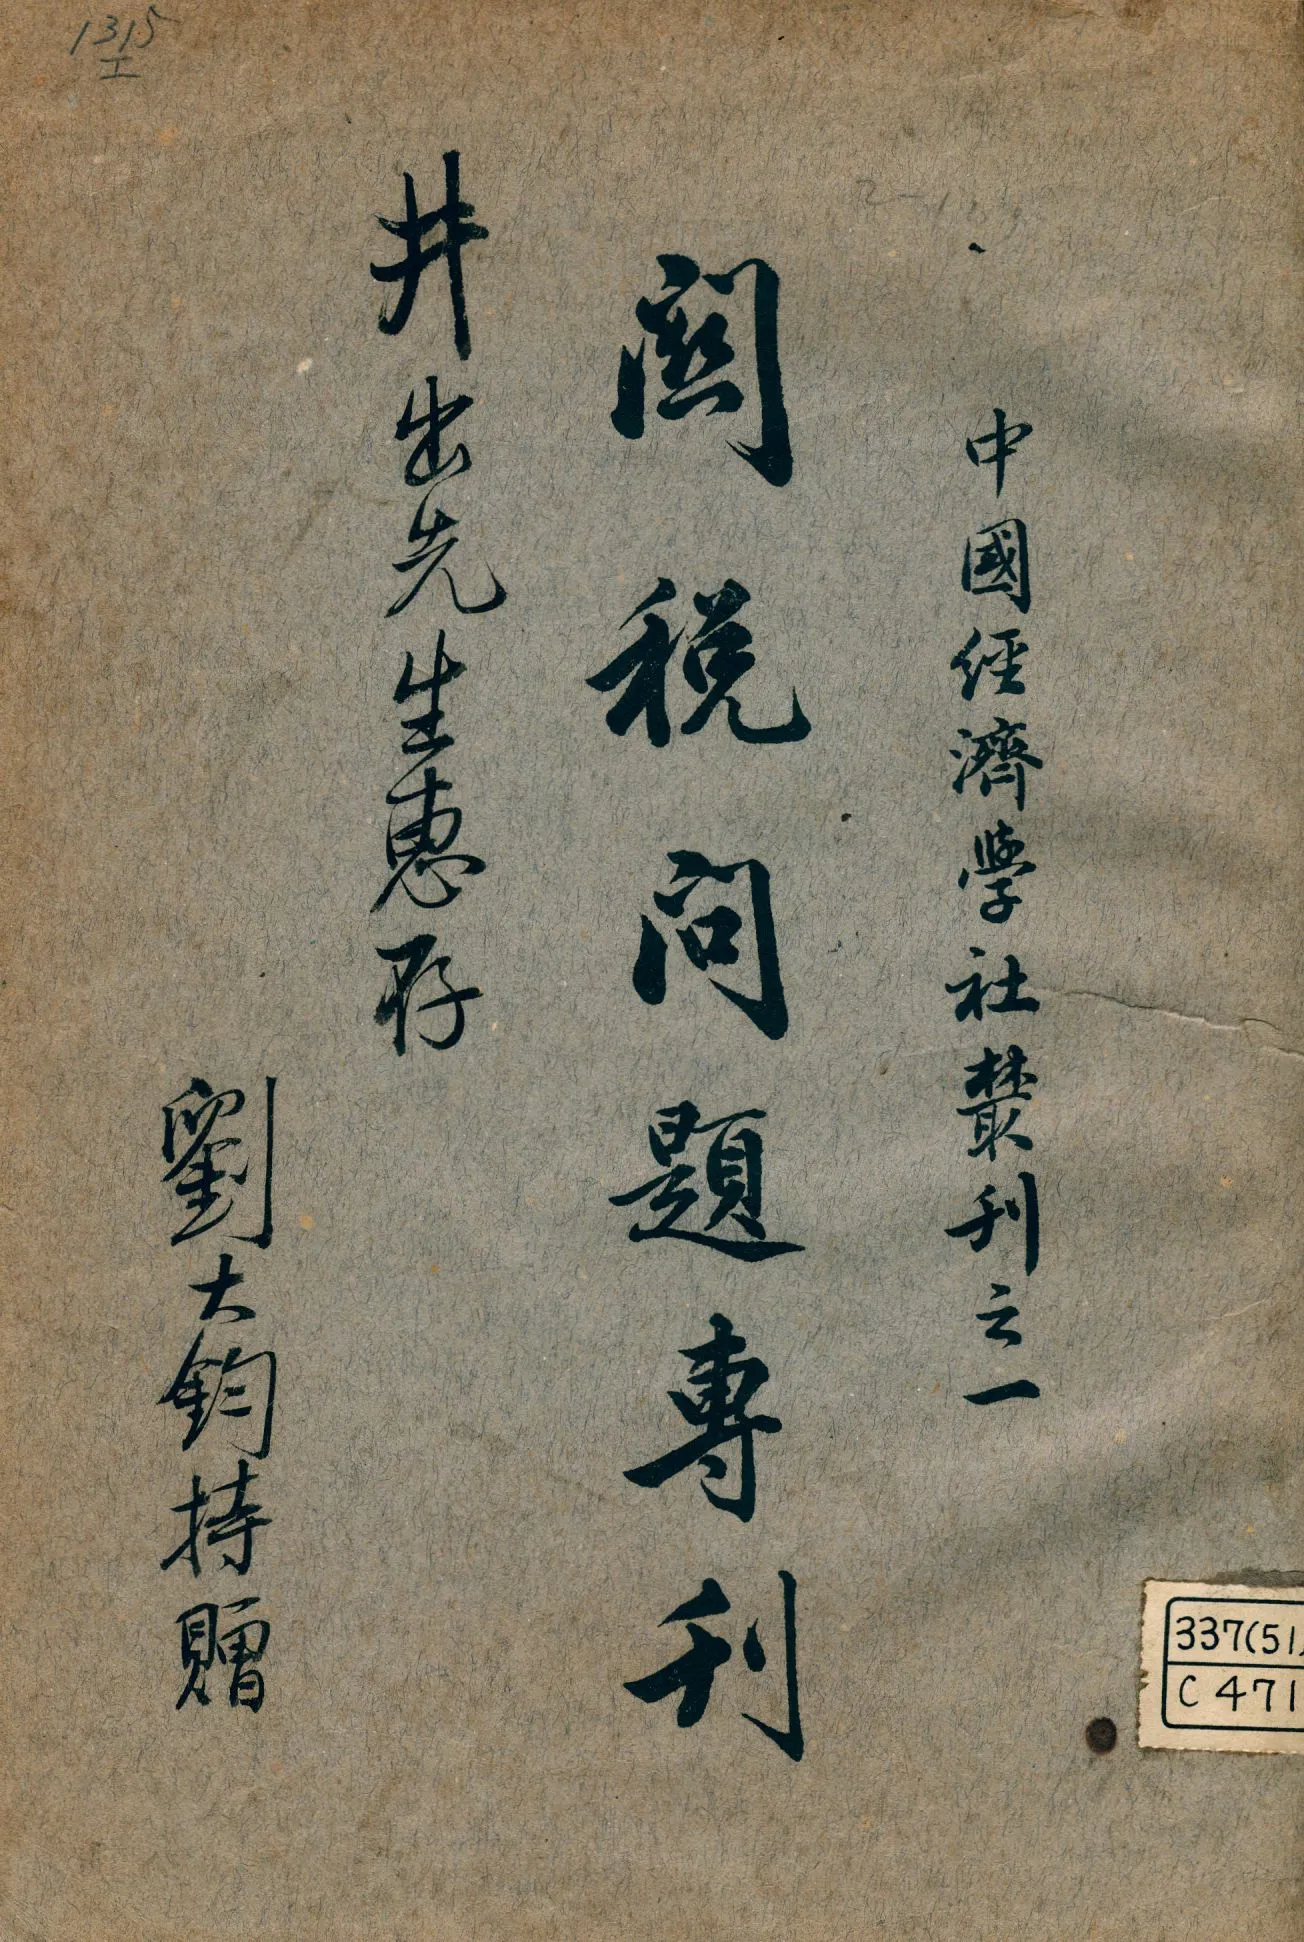 1315
I
中國經濟學社叢刊之一
関税问題專刊
井出先生惠存
劉大鈞持贈
337(51)
C 471